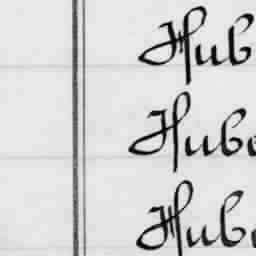 Hub
Hube
Hube